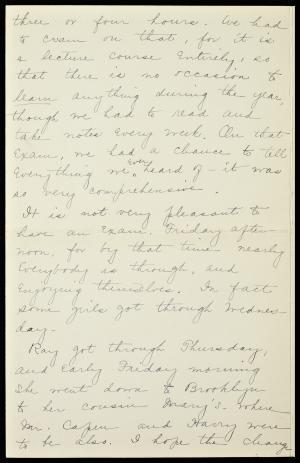 three or four hours. We had
to cram on that, for it is
a lecture course entirely, so
that there is no occasion to
learn anything during the year,
though we had to read and
take notes every week. On that
exam, we had a chance to tell
everything we ever heard of - it was
so very comprehensive.
It is not very pleasant to
have an exam. Friday after-
noon, for by that time nearly
everybody is through, and
enjoying themselves. In fact
some girls got through Wednes-
day.
Ray got through Thursday,
and early Friday morning
she went down to Brooklyn
to her cousin Mary's where
Mr. Capen and Harry were
to be also. I hope the change